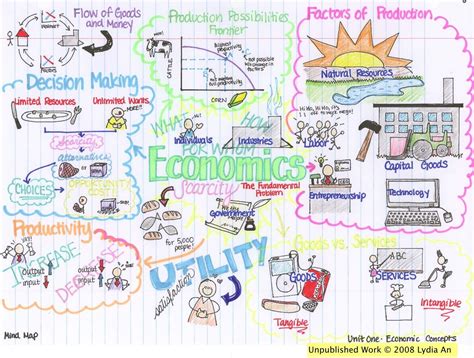 Flow of Goods
and Money
Production Possibilities
Frontier
CATTLE
CORN
Factors of Production
Natural Resources
Labor
Capital Goods
Entrepreneurship
Technology
Decision Making
Limited Resources
Unlimited Wants
Scarcity
Alternatives
CHOICES
WHAT
HOW
FOR WHOM
Individuals
Industries
Economics
Scarcity
The Fundamental
Problem
Government
Productivity
INCREASE
DECREASE
output
input
output
input
for 5,000
people?
UTILITY
satisfaction
Goods vs. Services
GOODS
Tangible
ABC
SERVICES
Intangible
Mind Map
Unit One - Economic Concepts
Unpublished Work © 2008 Lydia An